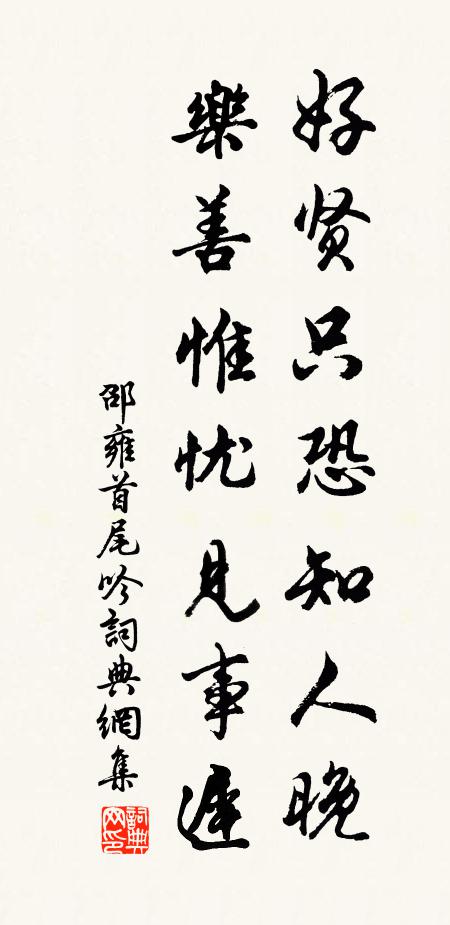 好贤只恐知人晚
樂善惟忧見事遲
邵雍首尾吟詞典網集
詞典網印